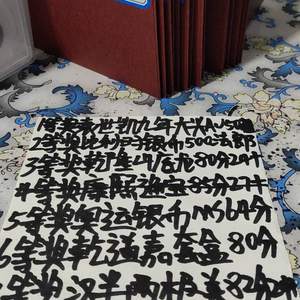 1等奖袁世凯九年大头MS62
2等奖比利时银币50法郎
3等奖乾隆山底龙80分24#
4等奖康熙通宝85分27#
5等奖奥运银币MS64分
6等奖乾道嘉套盒80分
等奖汉半两极美82分